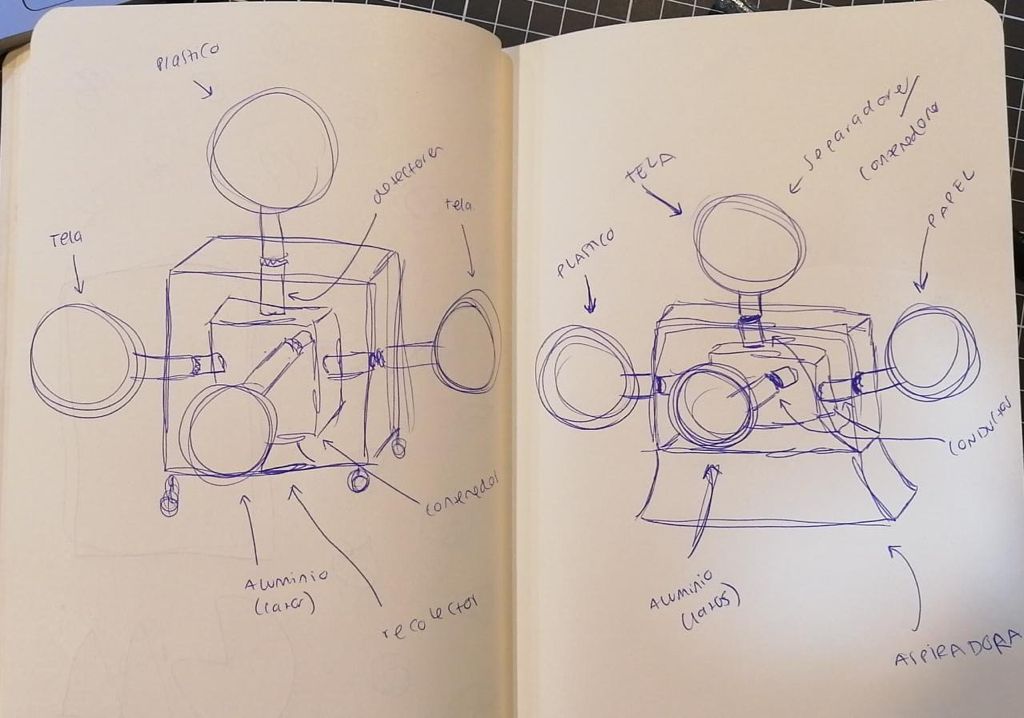 Plastico
detectores
Tela
Tela
contenedor
Aluminio
(latas)
recolector
separadores/
contenedores
TELA
PLASTICO
PAPEL
CONDUCTOS
ALUMINIO
(latas)
ASPIRADORA